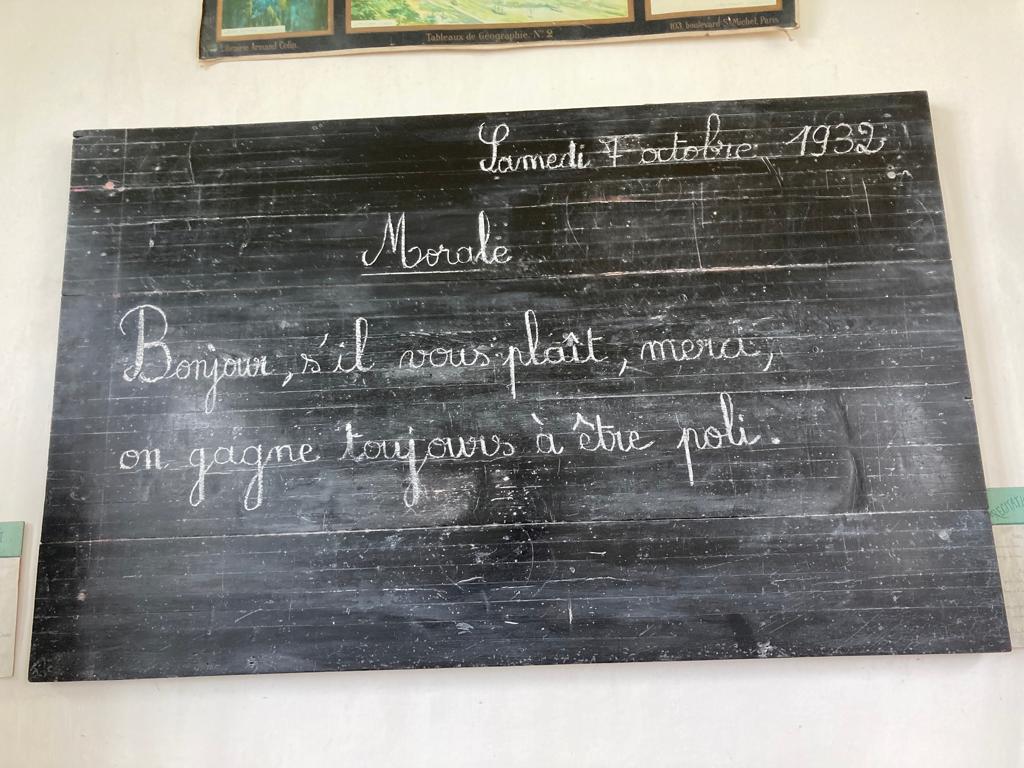 Librairie Armand Colin.
Tableaux de Géographie. Nº 2
103, boulevard St Michel, Paris
Samedi 7 octobre 1932
Morale
Bonjour, s'il vous plaît, merci,
on gagne toujours à être poli.